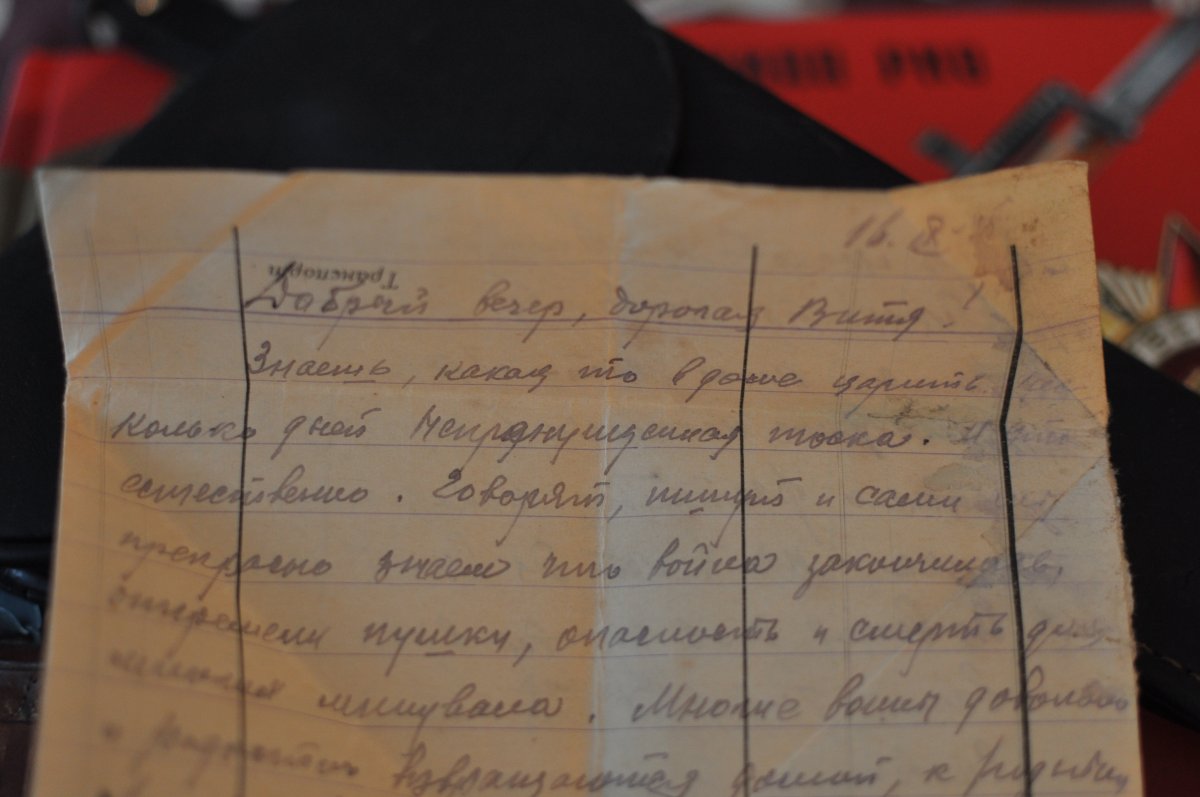 16. X
Транспорт
Добрый вечер, дорогая Витя!
Знаешь, какая то в доме царить
колько дней непрднушденная тоска. И это
естественно. Говорят, пишут и сами
прекрасно знаем что война закончилась,
отгремели пушки, опасность и смерть
минувала. Многие воины довольно
и радостно взвращаются домой, к родным